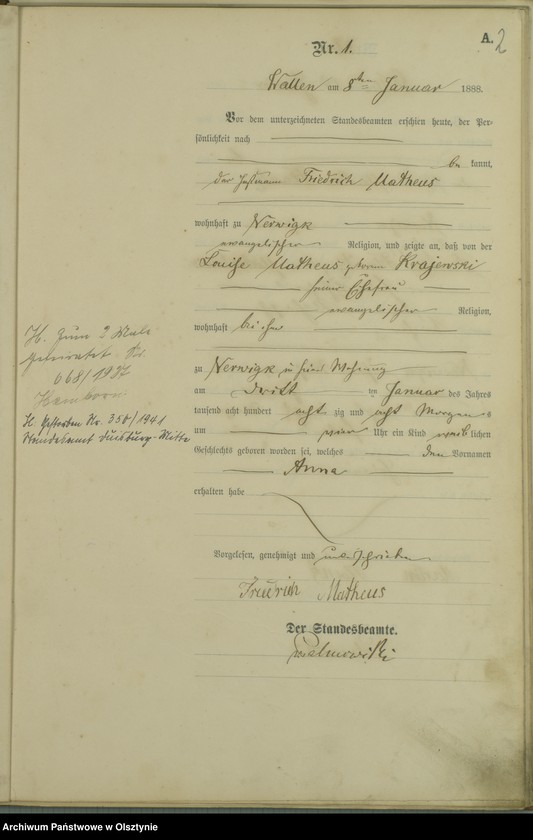 A. 2
Nr. 1.
Wallen am 8ten Januar 1888.
Vor dem unterzeichneten Standesbeamten erschien heute, der Per-
sönlichkeit nach
be kannt,
der Friedrich Matheus
wohnhaft zu Nerwigk
evangelischer Religion, und zeigte an, daß von der
Louise Matheus geborene Krajewski
seiner Ehefrau
evangelischer Religion,
wohnhaft bei ihm
zu Nerwigk in seiner Wohnung
am dritten Januar des Jahres
tausend acht hundert acht zig und acht Morgens
um vier Uhr ein Kind weiblichen
Geschlechts geboren worden sei, welches den Vornamen
Anna
erhalten habe
Vorgelesen, genehmigt und unterschrieben
Friedrich Matheus
Der Standesbeamte.
H. zum 2 Male
geheiratet Nr.
668/1937
Hamborn
H. Gestorben Nr. 350/1941
Standesamt Duisburg-Mitte
Archiwum Państwowe w Olsztynie